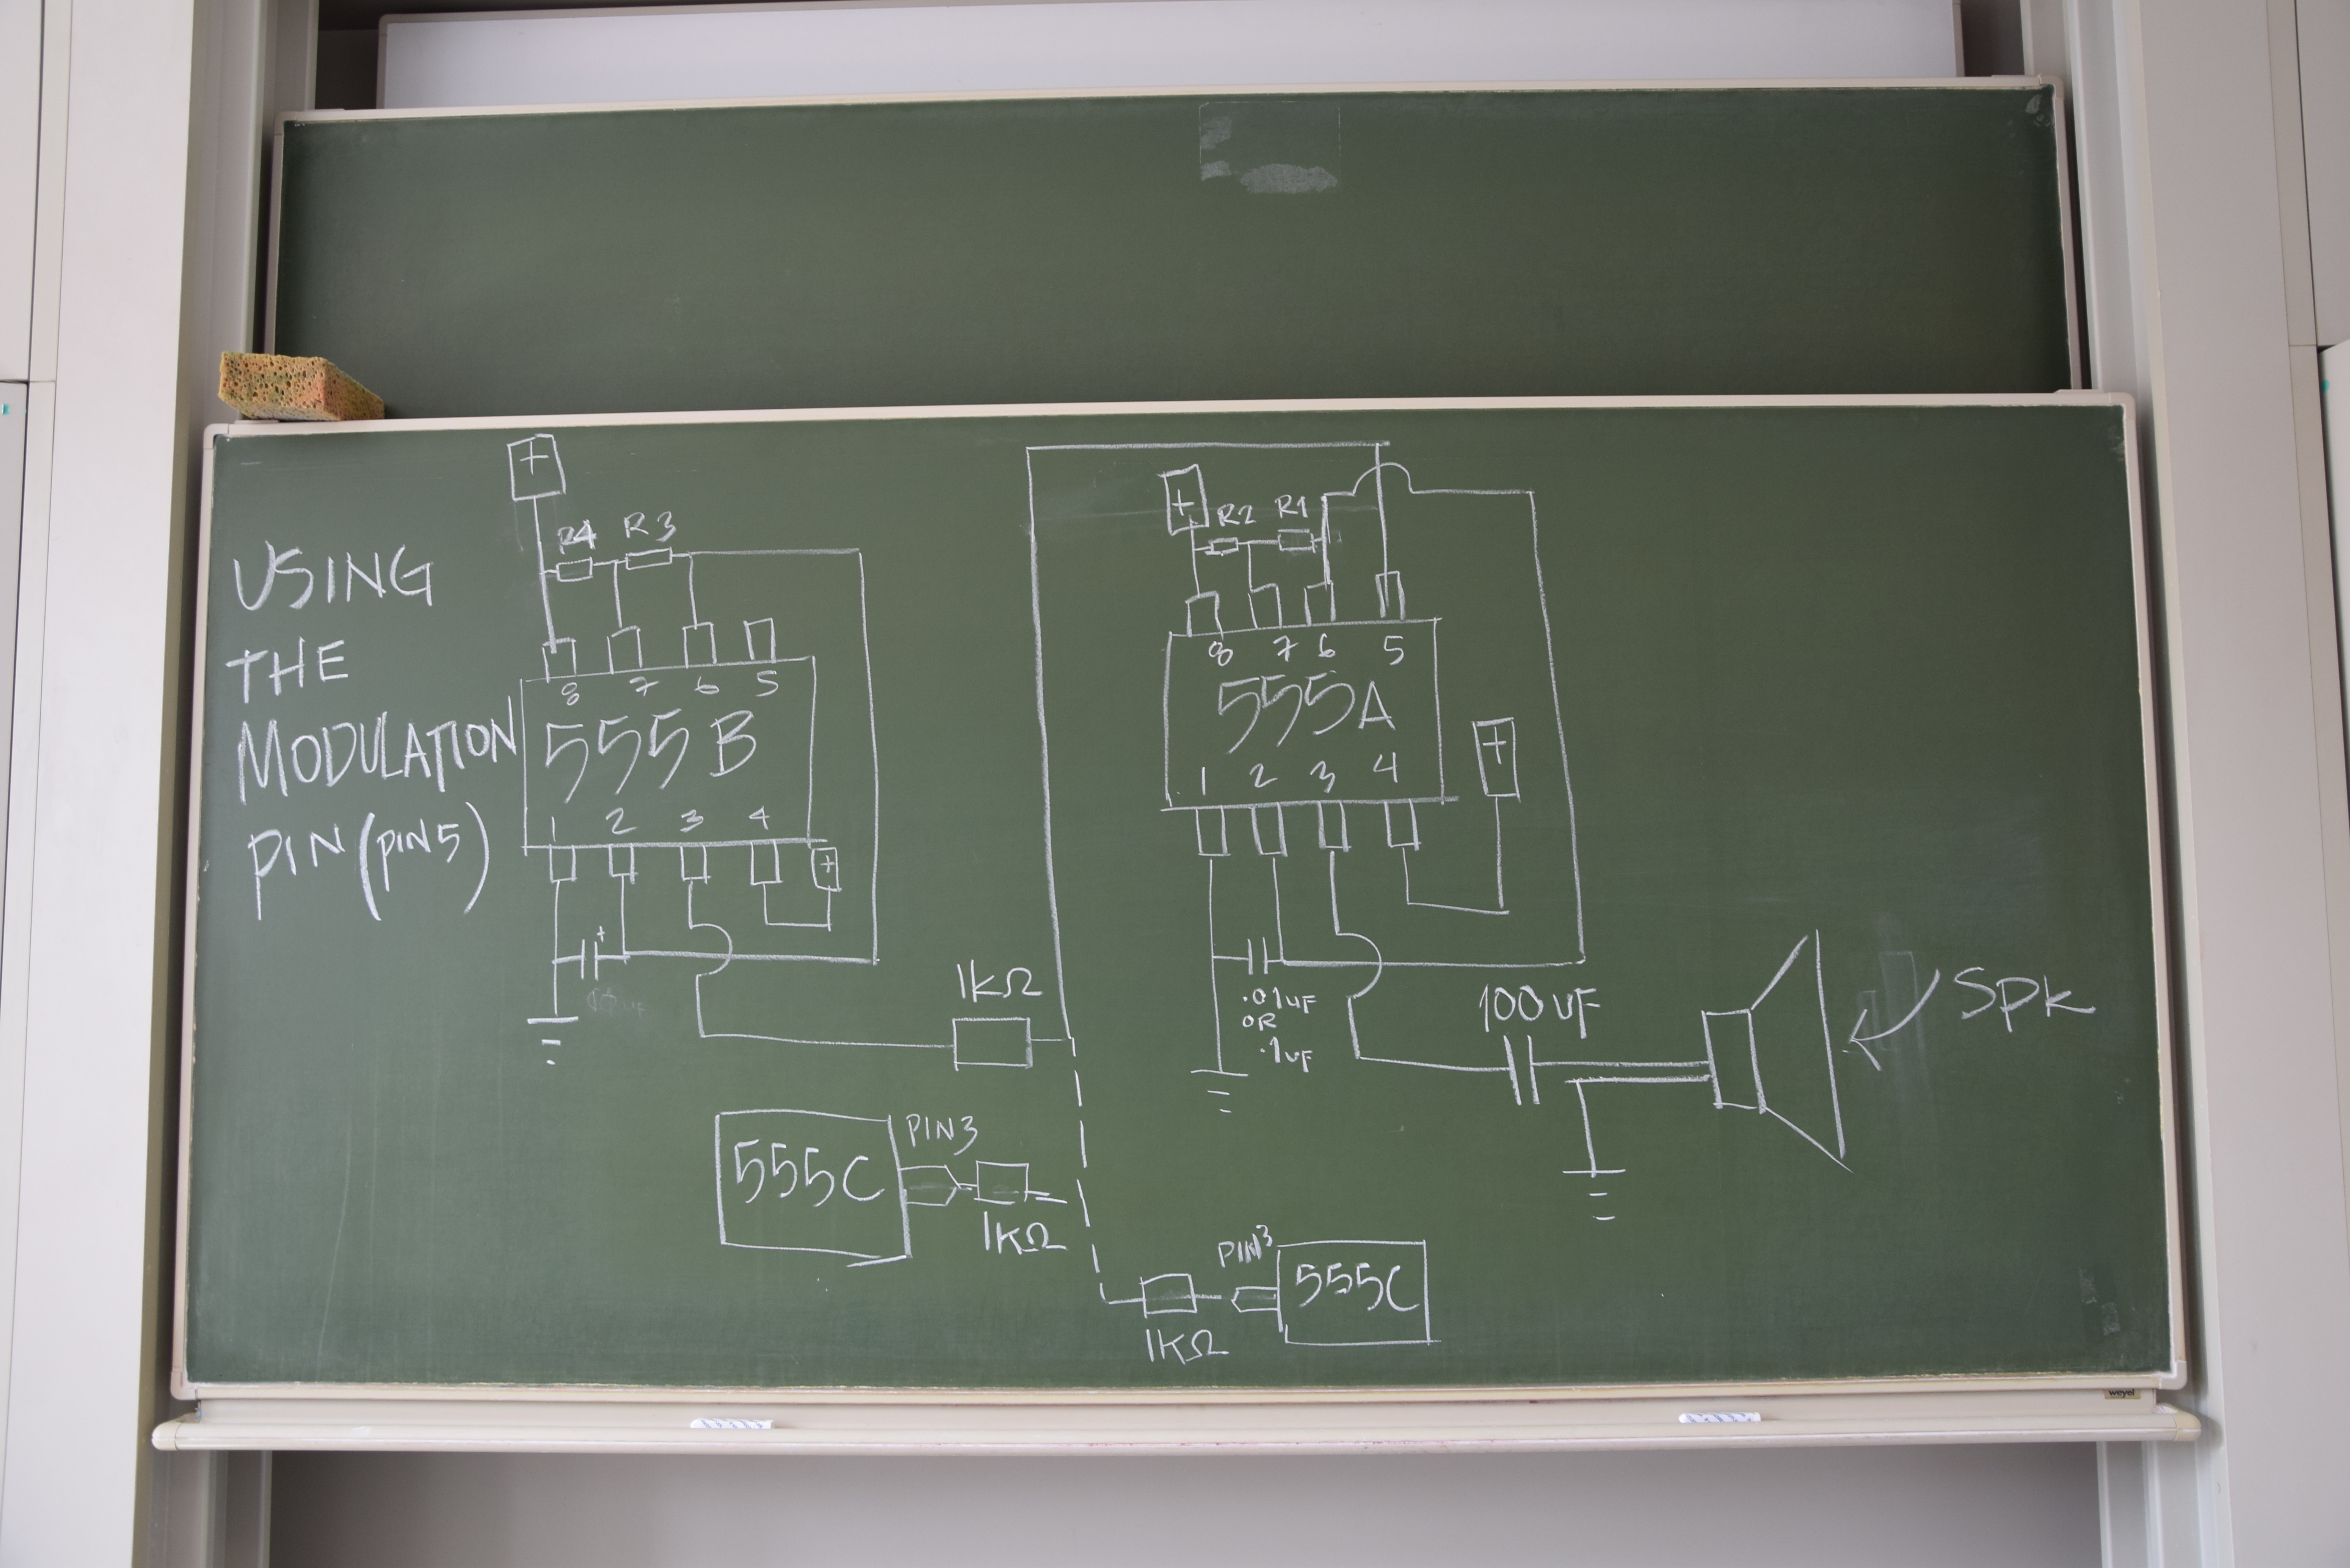 USING
THE
MODULATION
PIN (PIN 5)
+
R4 R3
8 7 6 5
555 B
1 2 3 4
+
+
1KΩ
+
R2 R1
8 7 6 5
555A
1 2 3 4
+
.01uF
OR
.1uF
100uF
SPK
555C
PIN3
1KΩ
PIN3
555C
1KΩ
weyel